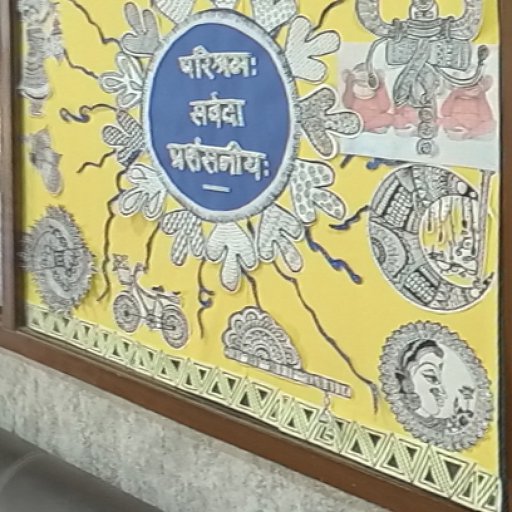 परिश्रमः
सर्वदा
प्रशंसनीयः